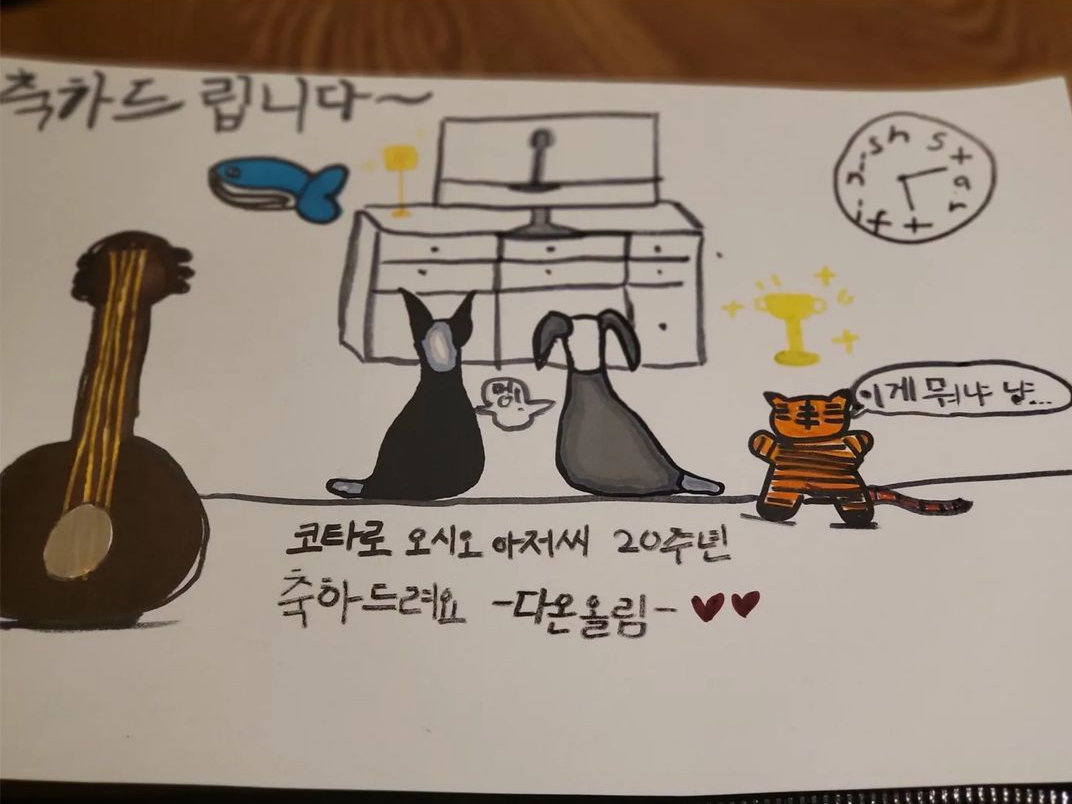 축하드립니다~
sh star tif
멍!
이게 뭐냐 냥...
코타로 오시오 아저씨 20주년
축하드려요 -다온올림-